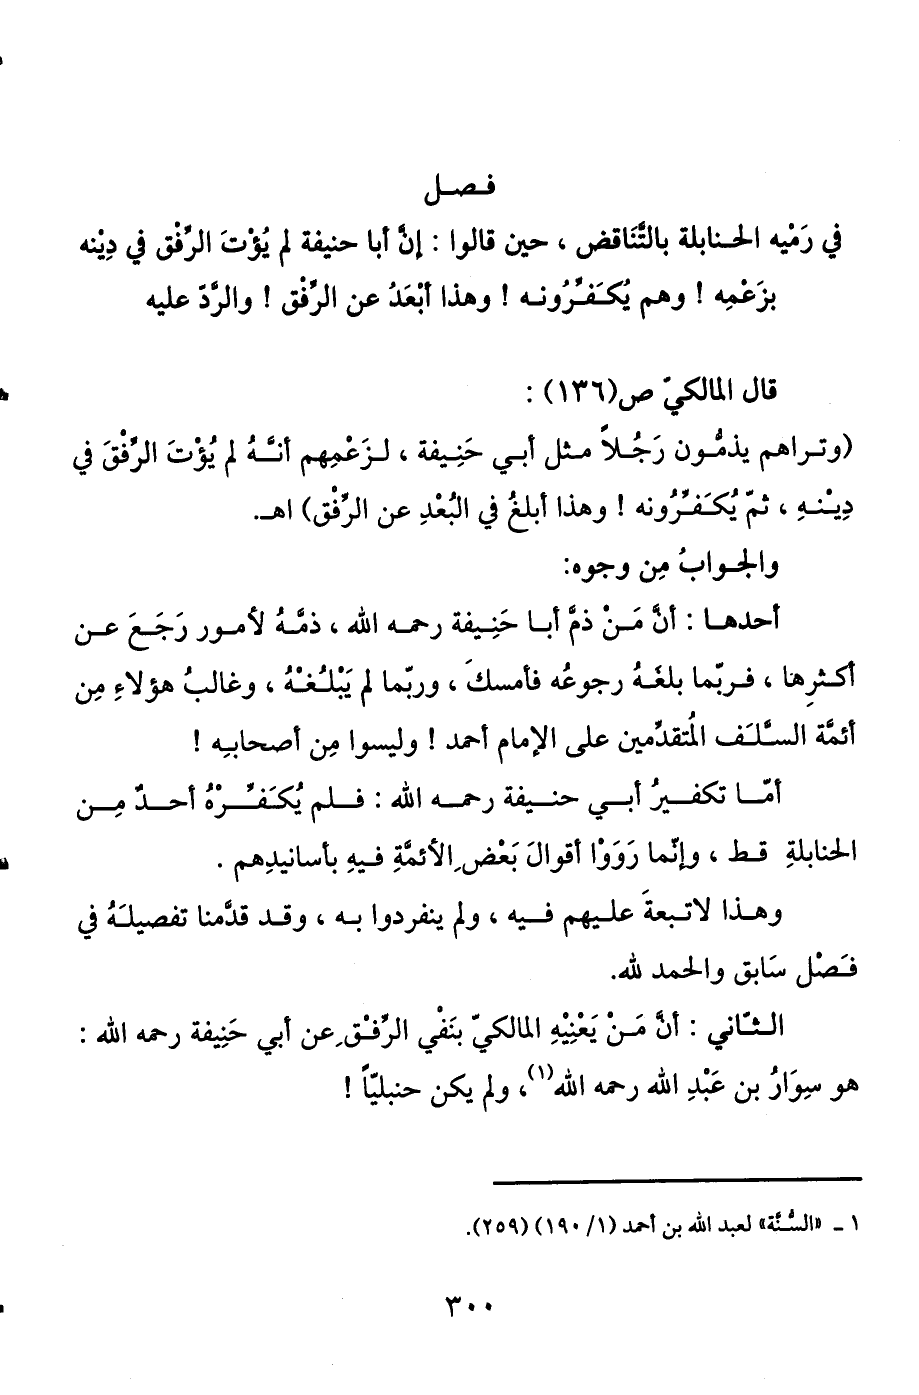 فـصـل
في رَمْيه الحـنابلة بالتَّنَاقض ، حين قالوا : إنَّ أبا حنيفة لم يُؤْتَ الرِّفْق في دِيْنه
بزَعْمِه ! وهم يُكـَفِّرُونـه ! وهذا أبْعَدُ عن الرِّفْق ! والرَّدّ عليه
قال المالكيّ ص(١٣٦) :
(وتـراهم يذمُّـون رَجُـلاً مـثل أبـي حَنِـيفة ، لـزَعْمِهم أنَّـهُ لم يُؤْتَ الرِّفْقَ في
دِيْـنـهِ ، ثمّ يُكـَفِّرُونه ! وهذا أبلغُ في البُعْدِ عن الرِّفْق) اهـ.
والجـوابُ مِن وجوه:
أحدهـا : أنَّ مَـنْ ذمَّ أبـا حَنِـيفة رحمـه الله ، ذمَّـهُ لأمـور رَجَـعَ عـن
أكـثرِها ، فـربّما بلغَـهُ رجوعُه فأمسكَ ، وربّما لم يَبْلُـغْـهُ ، وغالبُ هؤلاءِ مِن
أئمَّة السَّـلَـف المُتقدِّمين على الإمام أحمد ! وليسوا مِن أصحابـِه !
أمّـا تكفـيرُ أبـي حنـيفة رحمـه الله : فـلم يُكَـفِّـرْهُ أحـدٌ مِـن
الحنابلةِ قـط ، وإنّما رَوَوْا أقوالَ بَعْضِ الأئمَّةِ فـيهِ بأسانيدِهم .
وهـذا لاتـبعةَ علـيهم فـيه ، ولم ينفردوا بـه ، وقـد قدَّمنا تفصيلَـهُ في
فـَصْل سَابق والحمد لله.
الـثّاني : أنَّ مَـنْ يَعْنِيْهِ المالكيّ بنَفْي الرِّفْـقِ عن أبي حَنِيفة رحمه الله :
هو سِوَارُ بن عَبْدِ الله رحمه الله(١)، ولم يكن حنبليّاً !
١ ـ «السُّـنَّة» لعبد الله بن أحمد (١/ ١٩٠) (٢٥٩).
٣٠٠